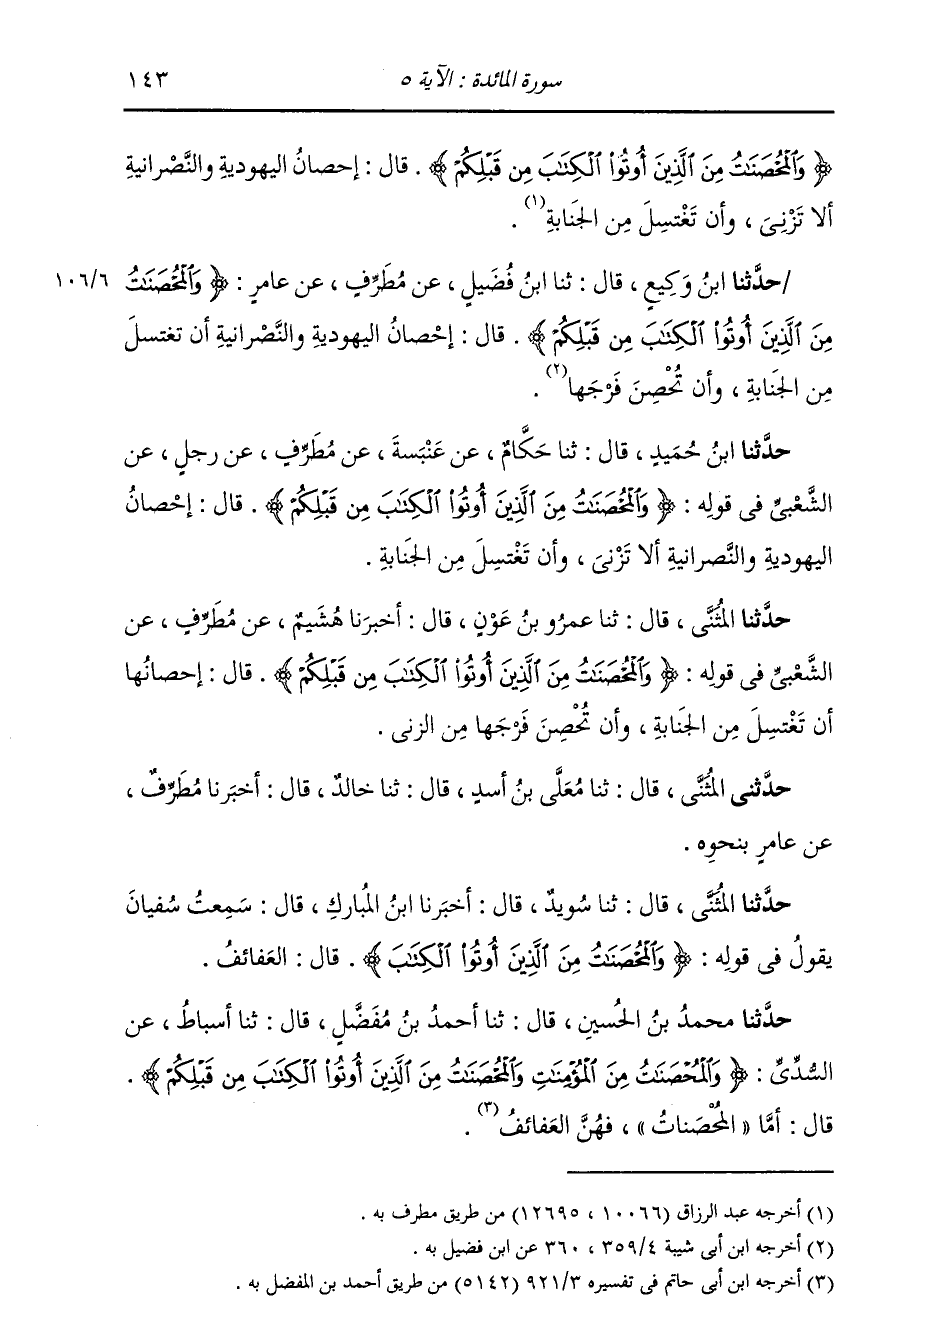 سورة المائدة : الآية ٥ ١٤٣
﴿ وَٱلْمُحْصَنَٰتُ مِنَ ٱلَّذِينَ أُوتُوا۟ ٱلْكِتَٰبَ مِن قَبْلِكُمْ ﴾ . قال : إحصانُ اليهوديةِ والنَّصْرانيةِ
ألا تَزْنِىَ ، وأن تَغْتسِلَ مِن الجَنابةِ(١) .
/حدَّثنا ابنُ وَكيعٍ ، قال : ثنا ابنُ فُضَيلٍ ، عن مُطَرِّفٍ ، عن عامرٍ : ﴿ وَٱلْمُحْصَنَٰتُ ١٠٦/٦
مِنَ ٱلَّذِينَ أُوتُوا۟ ٱلْكِتَٰبَ مِن قَبْلِكُمْ ﴾ . قال : إحْصانُ اليهوديةِ والنَّصْرانيةِ أن تغتسلَ
مِن الجَنابةِ ، وأن تُحْصِنَ فَرْجَها(٢) .
حدَّثنا ابنُ حُمَيدٍ ، قال : ثنا حَكَّامٌ ، عن عَنْبَسةَ ، عن مُطَرِّفٍ ، عن رجلٍ ، عن
الشَّعْبىِّ فى قولِه : ﴿ وَٱلْمُحْصَنَٰتُ مِنَ ٱلَّذِينَ أُوتُوا۟ ٱلْكِتَٰبَ مِن قَبْلِكُمْ ﴾ . قال : إحْصانُ
اليهوديةِ والنَّصرانيةِ ألا تَزْنىَ ، وأن تَغْتسِلَ مِن الجَنابةِ .
حدَّثنا المُثَنَّى ، قال : ثنا عمرُو بنُ عَوْنٍ ، قال : أخبرَنا هُشَيمٌ ، عن مُطَرِّفٍ ، عن
الشَّعْبىِّ فى قولِه : ﴿ وَٱلْمُحْصَنَٰتُ مِنَ ٱلَّذِينَ أُوتُوا۟ ٱلْكِتَٰبَ مِن قَبْلِكُمْ ﴾ . قال : إحصانُها
أن تَغْتسِلَ مِن الجَنابةِ ، وأن تُحْصِنَ فَرْجَها مِن الزنى .
حدَّثنى المُثَنَّى ، قال : ثنا مُعَلَّى بنُ أسدٍ ، قال : ثنا خالدٌ ، قال : أخبَرنا مُطَرِّفٌ ،
عن عامرٍ بنحوِه .
حدَّثنا المُثَنَّى ، قال : ثنا سُويدٌ ، قال : أخبَرنا ابنُ المُباركِ ، قال : سَمِعتُ سُفيانَ
يقولُ فى قولِه : ﴿ وَٱلْمُحْصَنَٰتُ مِنَ ٱلَّذِينَ أُوتُوا۟ ٱلْكِتَٰبَ ﴾ . قال : العَفائفُ .
حدَّثنا محمدُ بنُ الحُسينِ ، قال : ثنا أحمدُ بنُ مُفَضَّلٍ ، قال : ثنا أسباطُ ، عن
السُّدِّىِّ : ﴿ وَٱلْمُحْصَنَٰتُ مِنَ ٱلْمُؤْمِنَٰتِ وَٱلْمُحْصَنَٰتُ مِنَ ٱلَّذِينَ أُوتُوا۟ ٱلْكِتَٰبَ مِن قَبْلِكُمْ ﴾ .
قال : أمَّا « المُحْصَناتُ » ، فهُنَّ العَفائفُ(٣) .
(١) أخرجه عبد الرزاق (١٠٠٦٦ ، ١٢٦٩٥) من طريق مطرف به .
(٢) أخرجه ابن أبى شيبة ٣٥٩/٤ ، ٣٦٠ عن ابن فضيل به .
(٣) أخرجه ابن أبى حاتم فى تفسيره ٩٢١/٣ (٥١٤٢) من طريق أحمد بن المفضل به .